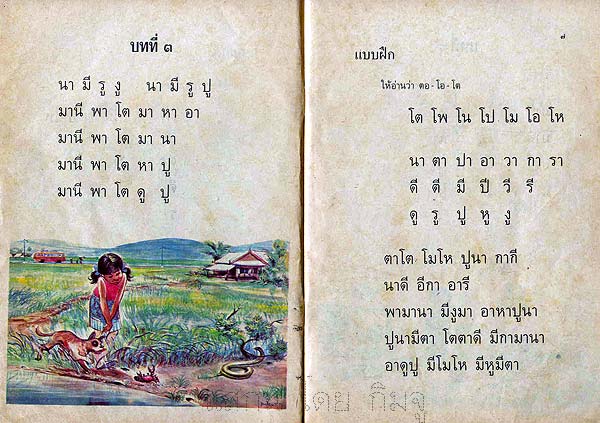 บทที่ ๓
นา มี รู งู นา มี รู ปู
มานี พา โต มา หา อา
มานี พา โต มา นา
มานี พา โต หา ปู
มานี พา โต ดู ปู
๗
แบบฝึก
ให้อ่านว่า ตอ - โอ - โต
โต โพ โน โป โม โอ โห
นา ตา ปา อา วา กา รา
ดี ตี มี ปี วี รี
ดู รู ปู หู งู
ตาโต โมโห ปูนา กากี
นาดี อีกา อารี
พามานา มีงูมา อาหาปูนา
ปูนามีตา โตตาดี มีกามานา
อาดูปู มีโมโห มีหูมีตา
โดย กิมจู